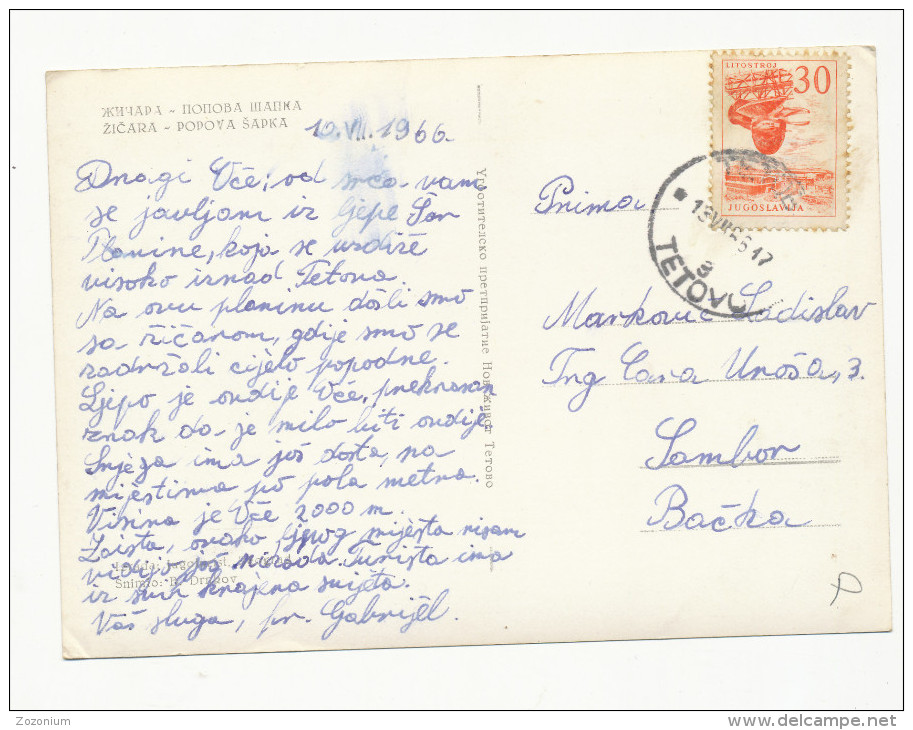 ЖИЧАРА - ПОПОВА ШАПКА
ŽIČARA - POPOVA ŠAPKA
10.VII.1966.
Dragi Vče; od srca vam
se javljam iz ljepe Šar
Planine, koja se uzdiže
visoko iznad Tetova
Na ovu planinu došli smo
sa žičarom, gdije smo se
zadržali cijelo popodne.
Ljepo je ovdije Vče, prekrasan
zrak da je milo biti ovdije
Snjega ima još dosta, na
mijestima po pola metra.
Visina je Vče 2000 m.
Zaista, ovako ljepog mijesta nisam
vidijo još nigda. Turista ima
iz sviu krajena svijeta.
Vaš sluga, fr. Gabrijel.
Snimio: B. Drnkov
Угоотителско претпријатие Нов живот Тетово
LITOSTROJ
30
JUGOSLAVIJA
13.VII.66.17
a
TETOVO
Prima
Marković Ladislav
Ing Cara Uroša, 3.
Sombor
Bačka
Zozonium
delcampe.net